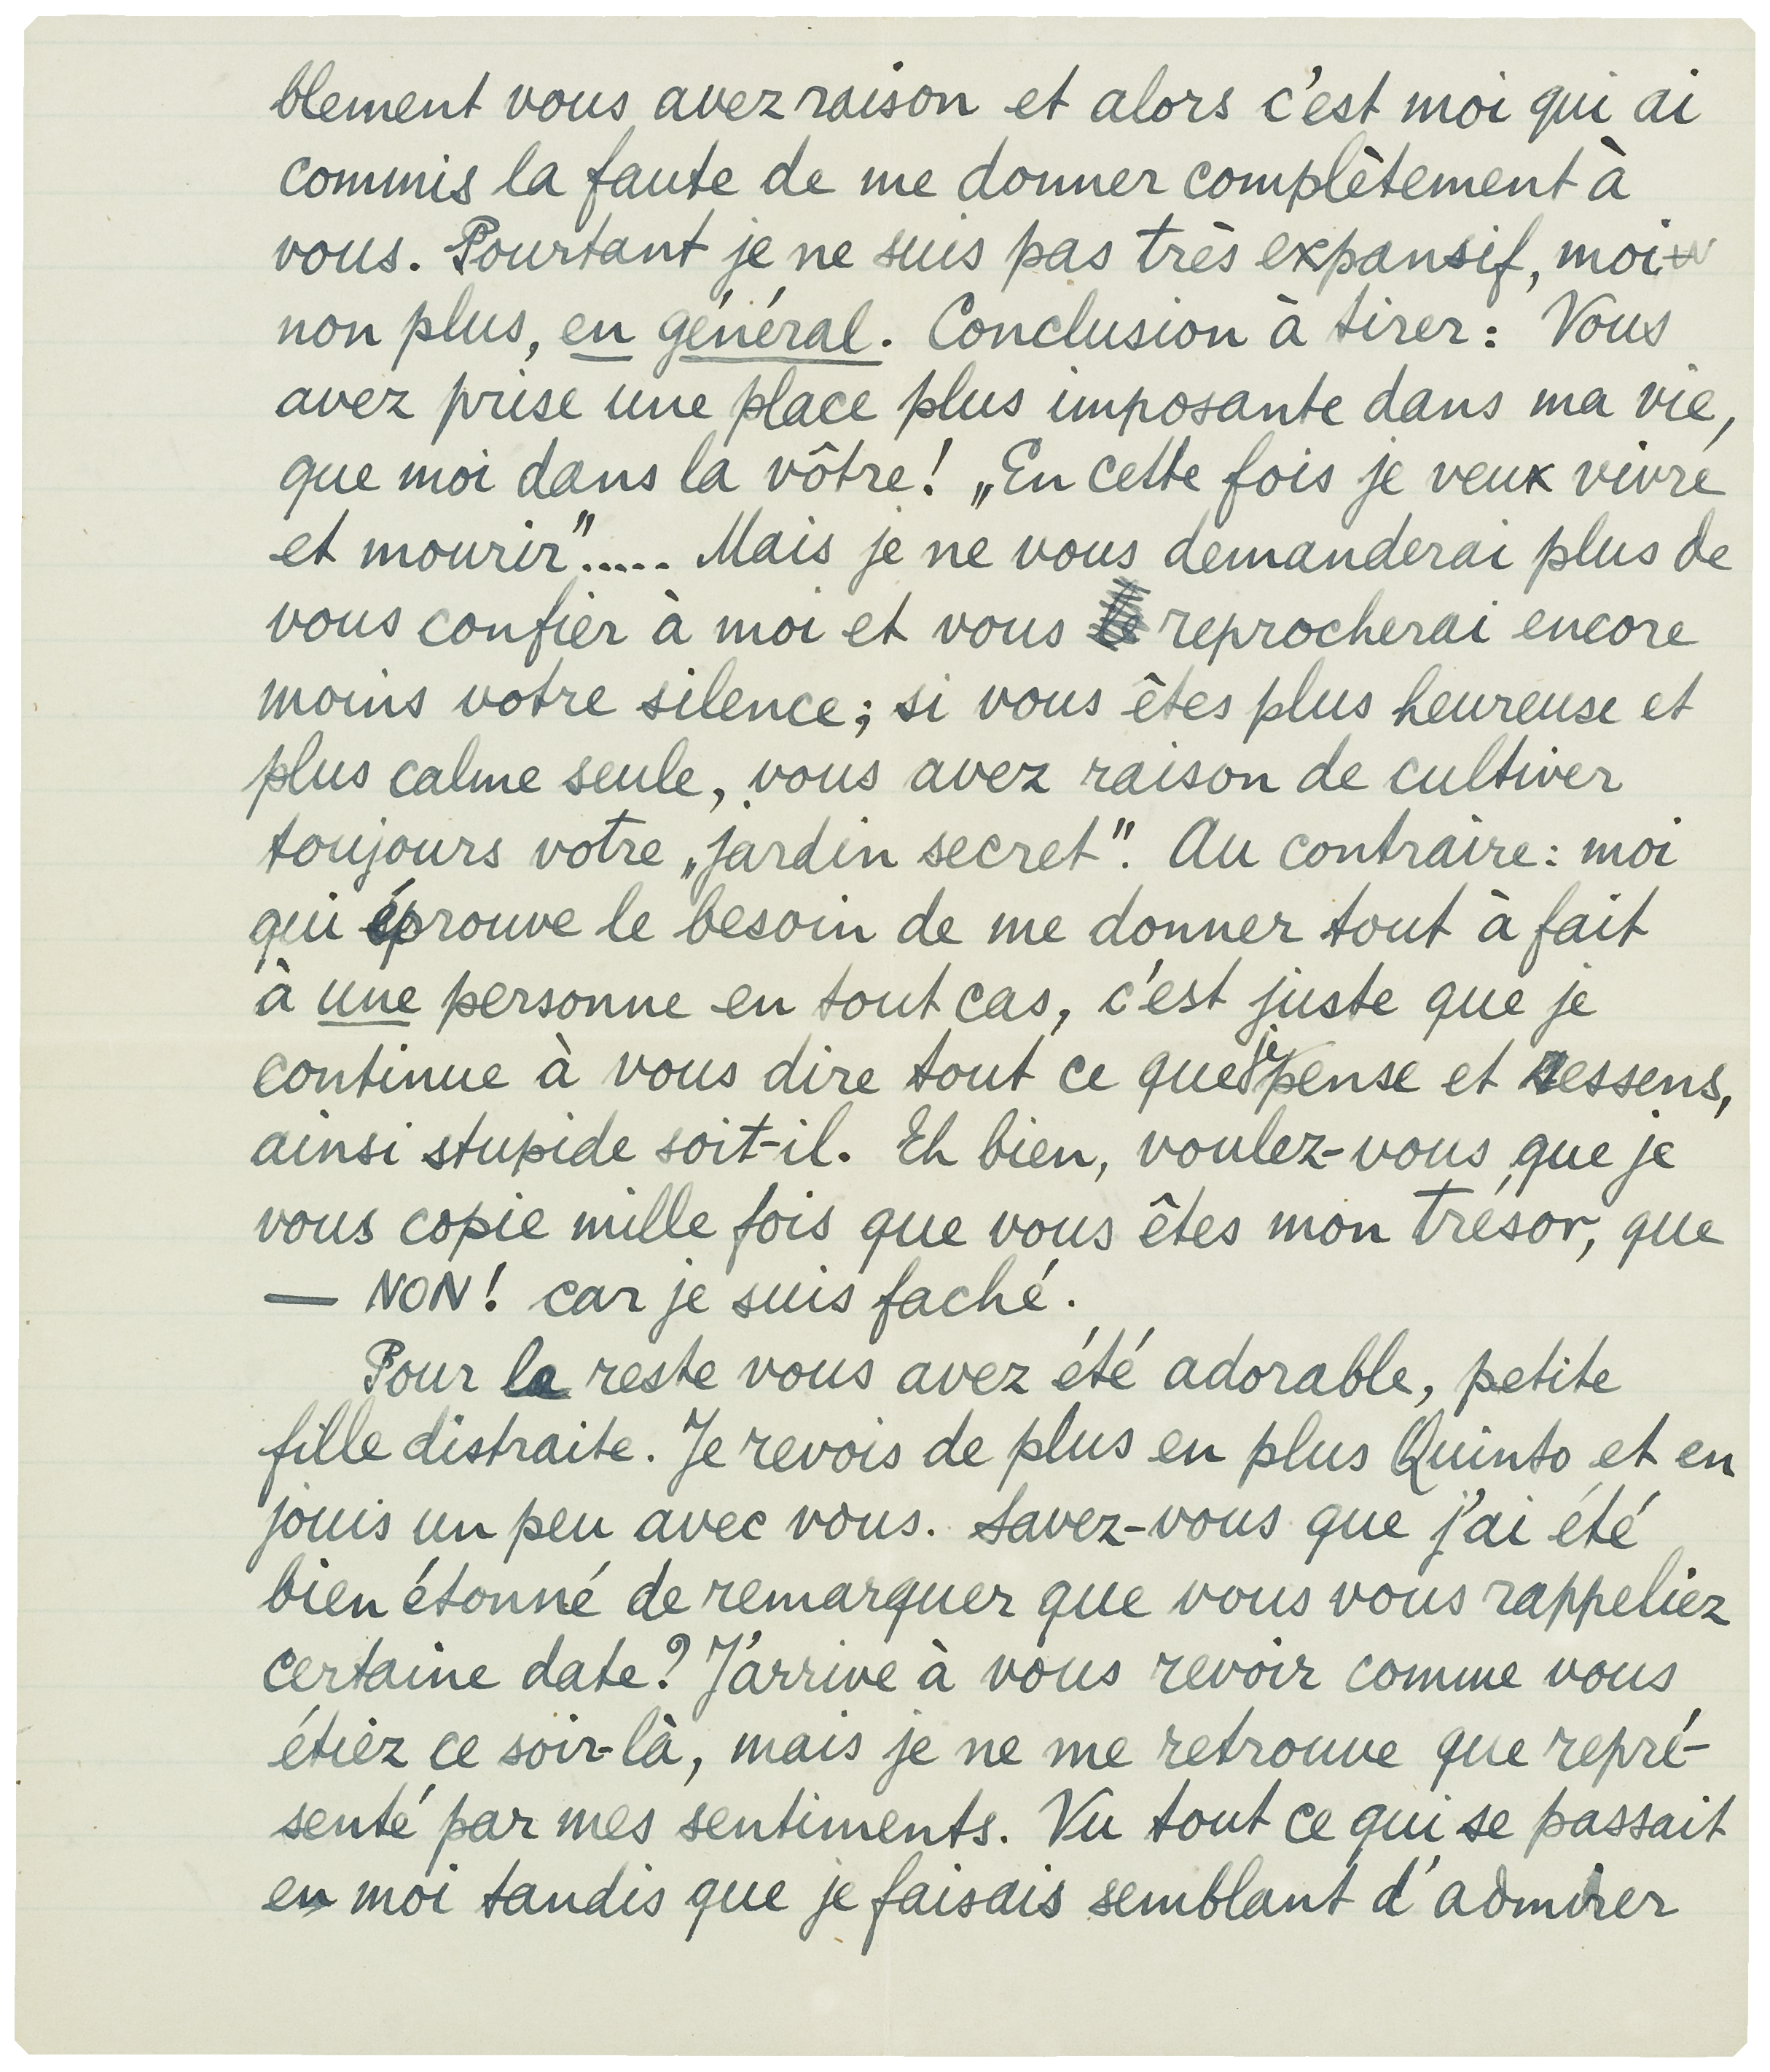 blement vous avez raison et alors c'est moi qui ai
commis la faute de me donner complètement à
vous. Pourtant je ne suis pas très expansif, moi
non plus, en général. Conclusion à tirer: Vous
avez prise une place plus imposante dans ma vie,
que moi dans la vôtre! „En cette fois je veux vivre
et mourir"..... Mais je ne vous demanderai plus de
vous confier à moi et vous reprocherai encore
moins votre silence; si vous êtes plus heureuse et
plus calme seule, vous avez raison de cultiver
toujours votre „jardin secret". Au contraire: moi
qui éprouve le besoin de me donner tout à fait
à une personne en tout cas, c'est juste que je
continue à vous dire tout ce que je pense et ressens,
ainsi stupide soit-il. Eh bien, voulez-vous que je
vous copie mille fois que vous êtes mon trésor, que
— NON! car je suis faché.
Pour le reste vous avez été adorable, petite
fille distraite. Je revois de plus en plus Quinto et en
jouis un peu avec vous. Savez-vous que j'ai été
bien étonné de remarquer que vous vous rappeliez
certaine date? J'arrive à vous revoir comme vous
étiez ce soir-là, mais je ne me retrouve que repré-
senté par mes sentiments. Vu tout ce qui se passait
en moi tandis que je faisais semblant d'admirer